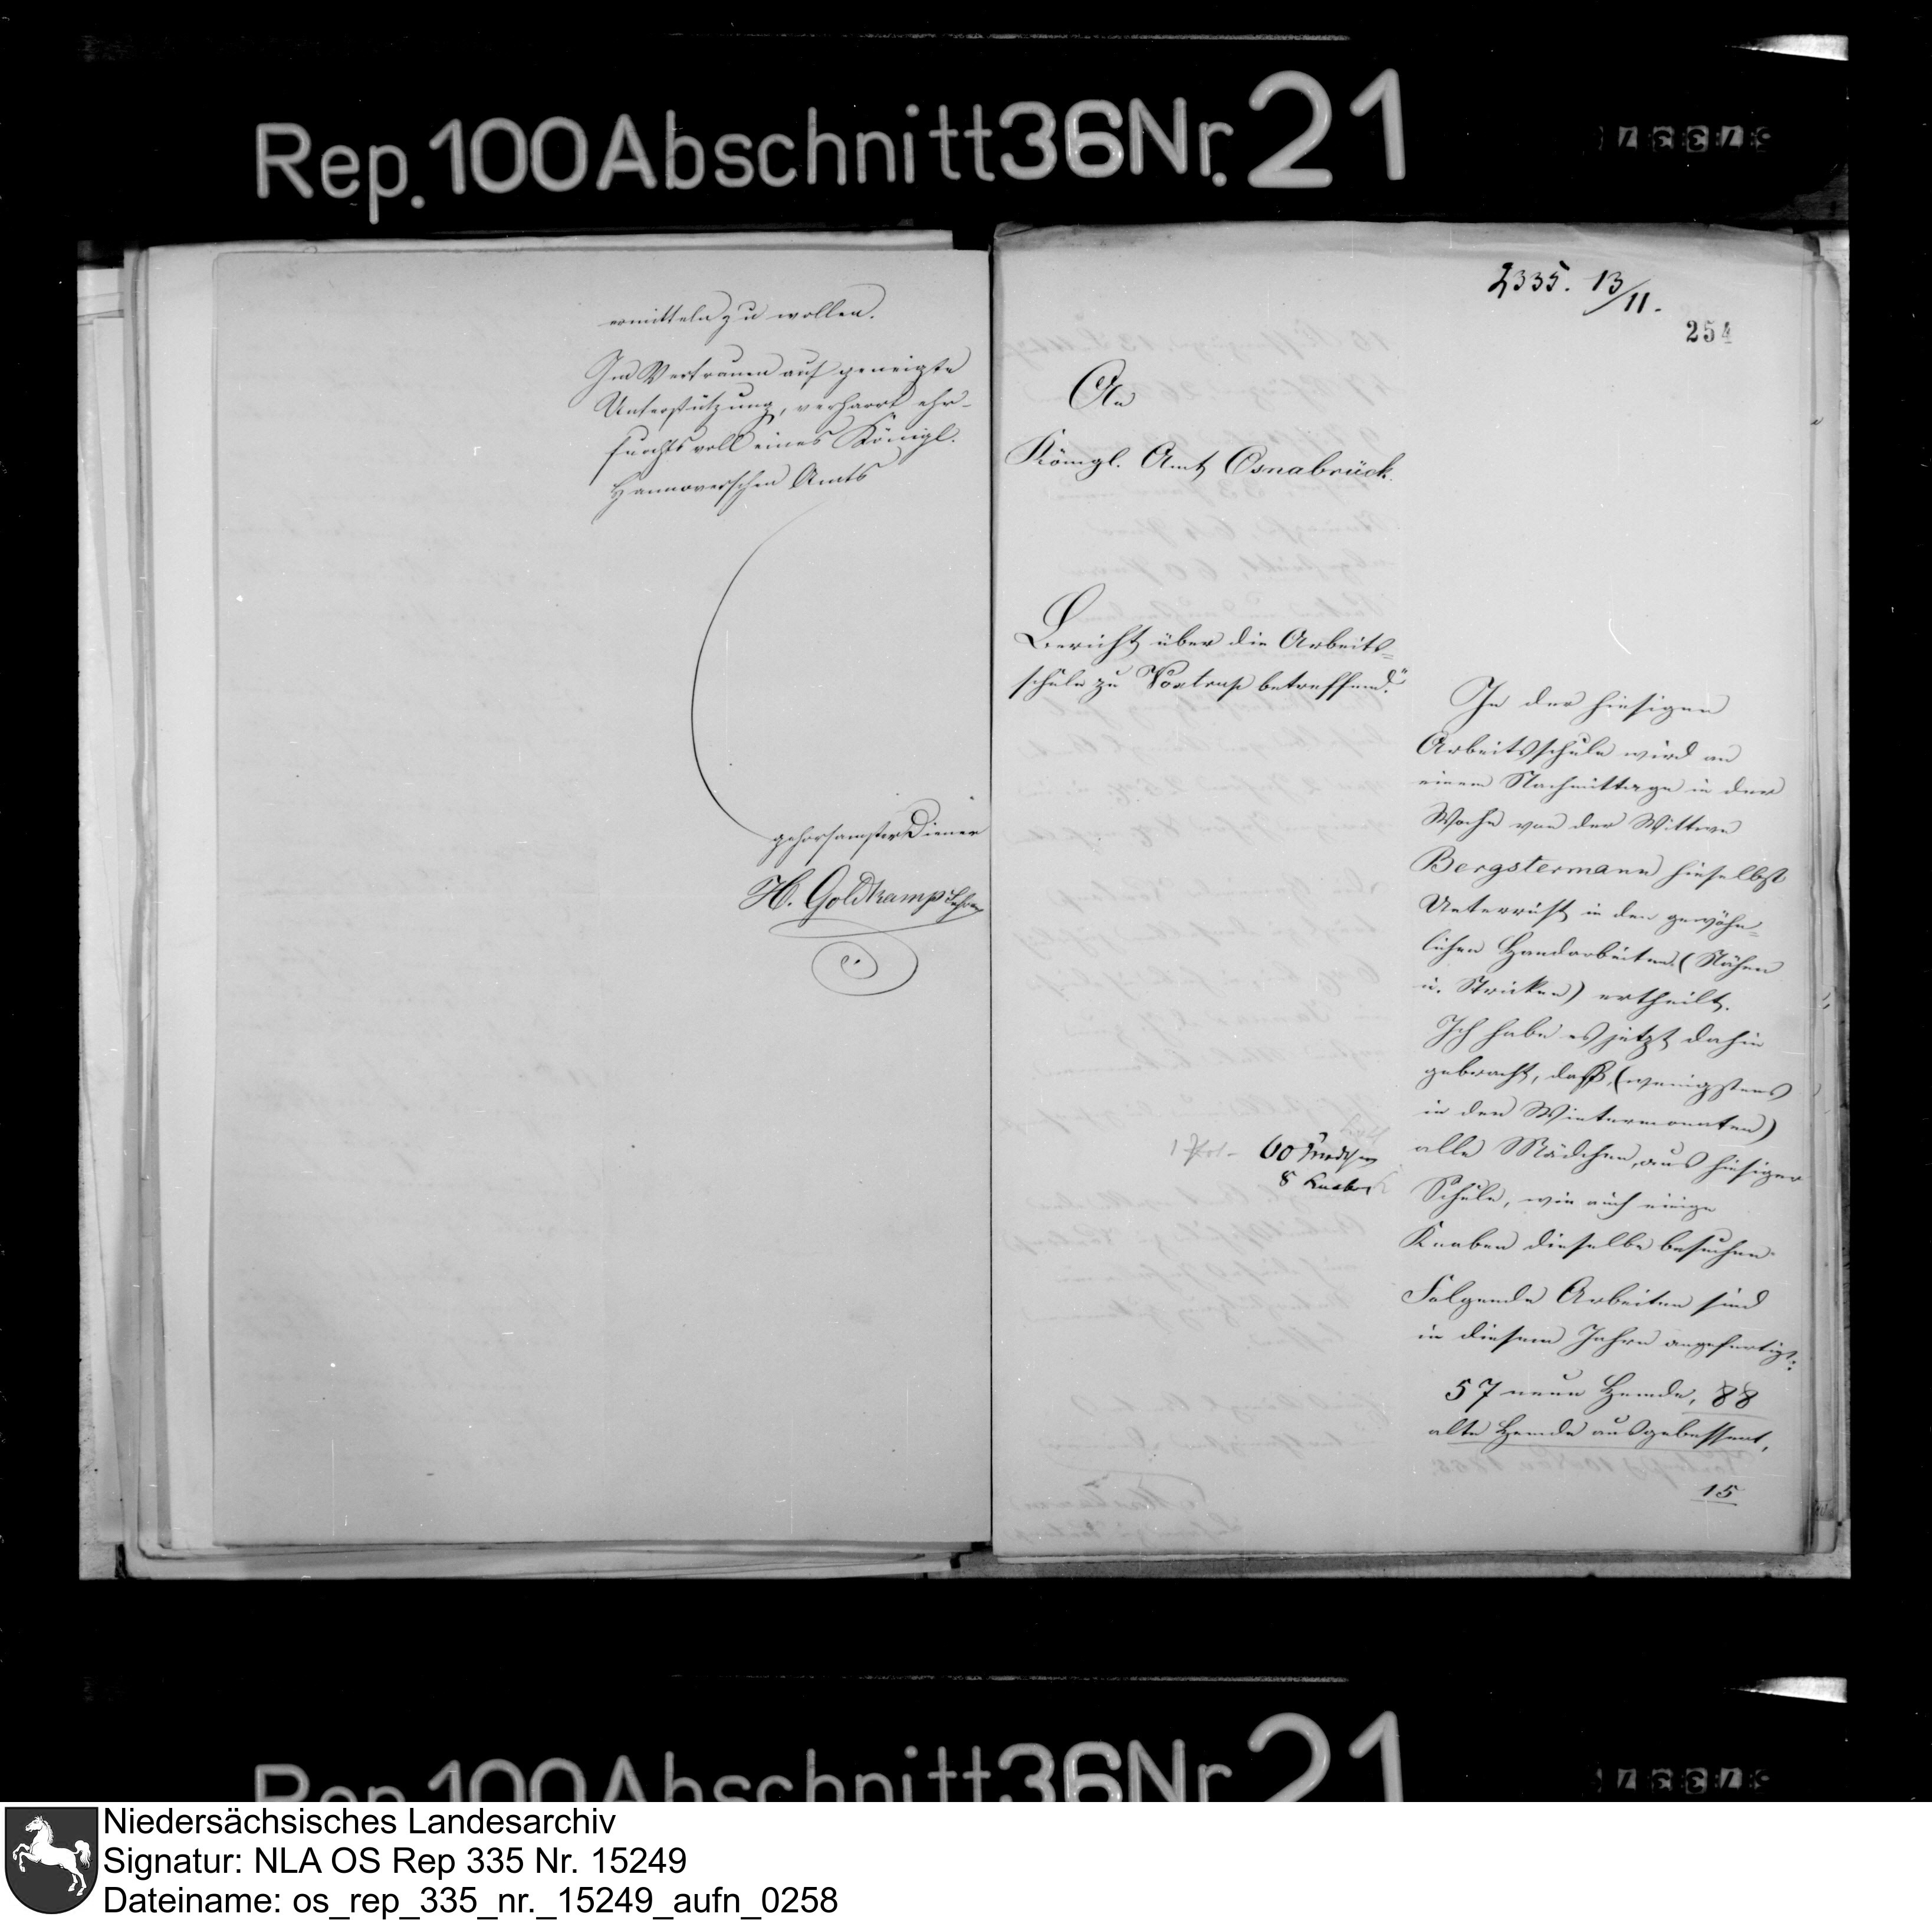 Rep. 100 Abschnitt 36 Nr. 21
ermitteln zu wollen.
Im Vertrauen auf geneigte
Unterstützung, verharrt ehr-
furchtsvoll eines Königl.
Hannoverschen Amts
gehorsamster Diener
H. Goldkamp Lehrer
2335. 13/11.
254
An
Königl. Amt Osnabrück.
Bericht über die Arbeits-
schule zu Voxtrup betreffend."
In der hiesigen
Arbeitsschule wird an
einem Nachmittage in der
Woche von der Wittwe
Bergstermann hieselbst
Unterricht in den gewöhn-
lichen Handarbeiten (Nähen
u. Stricken) ertheilt.
Ich habe es jetzt dahin
gebracht, daß (wenigstens
in den Wintermonaten)
alle Mädchen aus hiesiger
Schule, wie auch einige
Knaben dieselbe besuchen.
60 Mädchen
8 Knaben
Folgende Arbeiten sind
in diesem Jahre angefertigt:
57 neue Hemde, 88
alte Hemde ausgebessert,
15
Rep. 100 Abschnitt 36 Nr. 21
Niedersächsisches Landesarchiv
Signatur: NLA OS Rep 335 Nr. 15249
Dateiname: os_rep_335_nr._15249_aufn_0258